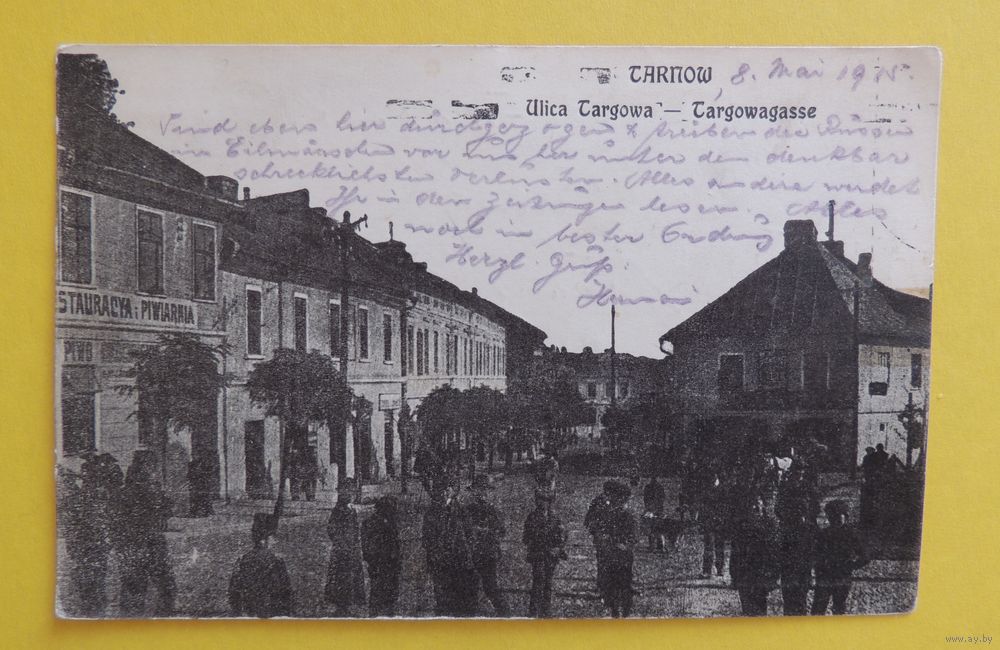 TARNOW, 8. Mai 1915.
Ulica Targowa — Targowagasse
Sind eben hier durchgezogen & treiben die Russen
im Eilmärschen vor uns her unter den denkbar
schrecklichsten Verlusten. Alles andere werdet
Ihr in den Zeitungen lesen. Alles
noch in bester Ordnung
Herzl. Gruß.
STAURACYA i PIWIARNIA
PIWO
www.ay.by